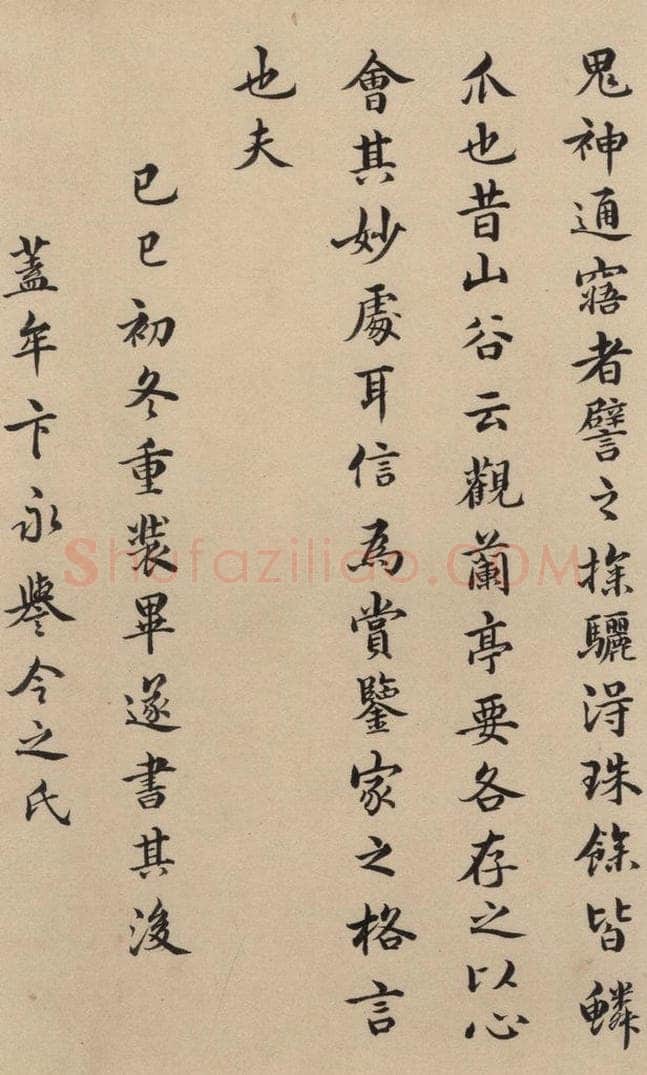 鬼神通寤者譬之探驪淂珠餘皆鱗
爪也昔山谷云觀蘭亭要各存之以心
會其妙處耳信為賞鑒家之格言
也夫
己巳初冬重裝畢遂書其後
蓋牟卞永譽令之氏
Shufaziliao.COM